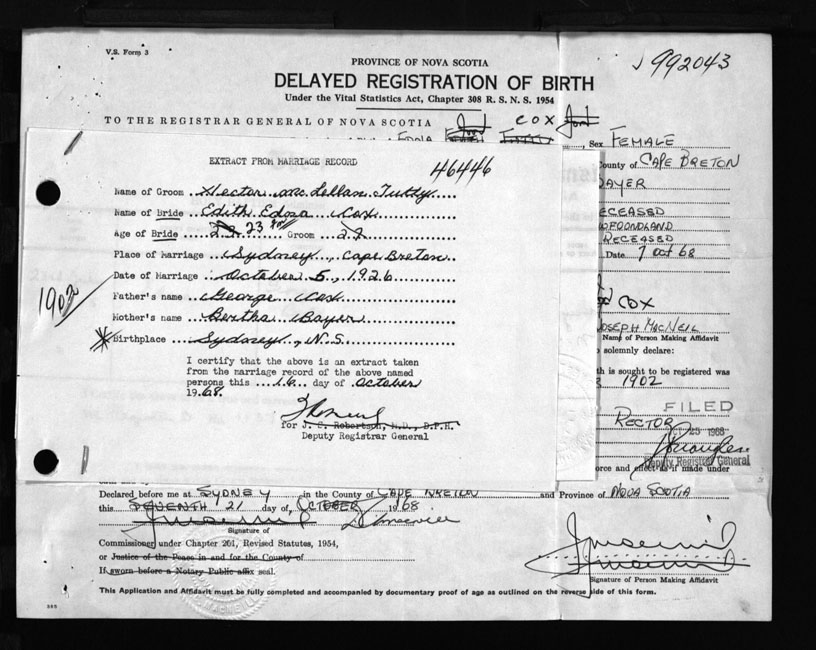 V.S. Form 3
PROVINCE OF NOVA SCOTIA
992043
DELAYED REGISTRATION OF BIRTH
Under the Vital Statistics Act, Chapter 308 R. S. N. S. 1954
TO THE REGISTRAR GENERAL OF NOVA SCOTIA
COX
EDNA
Sex FEMALE
EXTRACT FROM MARRIAGE RECORD
46446
County of CAPE BRETON
Name of Groom Hector McLellan Tutty
Name of Bride Edith Edna Cox
Age of Bride 23 Groom 27
Place of Marriage Sydney, Cape Breton
Date of Marriage October 5, 1926
Father's name George Cox
Mother's name Bertha Bayer
Birthplace Sydney, N.S.
1902
I certify that the above is an extract taken
from the marriage record of the above named
persons this 16 day of October
1968.
for J. C. Robertson, M.D., D.P.H.
Deputy Registrar General
DECEASED
DECEASED
Date 7 Oct 68
COX
JOSEPH MACNEIL
Name of Person Making Affidavit
solemnly declare:
th is sought to be registered was
1902
FILED
RECTOR
25 1968
Deputy Registrar General
orce and effect as if made under
Declared before me at SYDNEY in the County of CAPE BRETON and Province of NOVA SCOTIA
this SEVENTH 21 day of OCTOBER 1968
Signature of
Commissioner under Chapter 261, Revised Statutes, 1954,
or Justice of the Peace in and for the County of
If sworn before a Notary Public affix seal.
Signature of Person Making Affidavit
This Application and Affidavit must be fully completed and accompanied by documentary proof of age as outlined on the reverse side of this form.